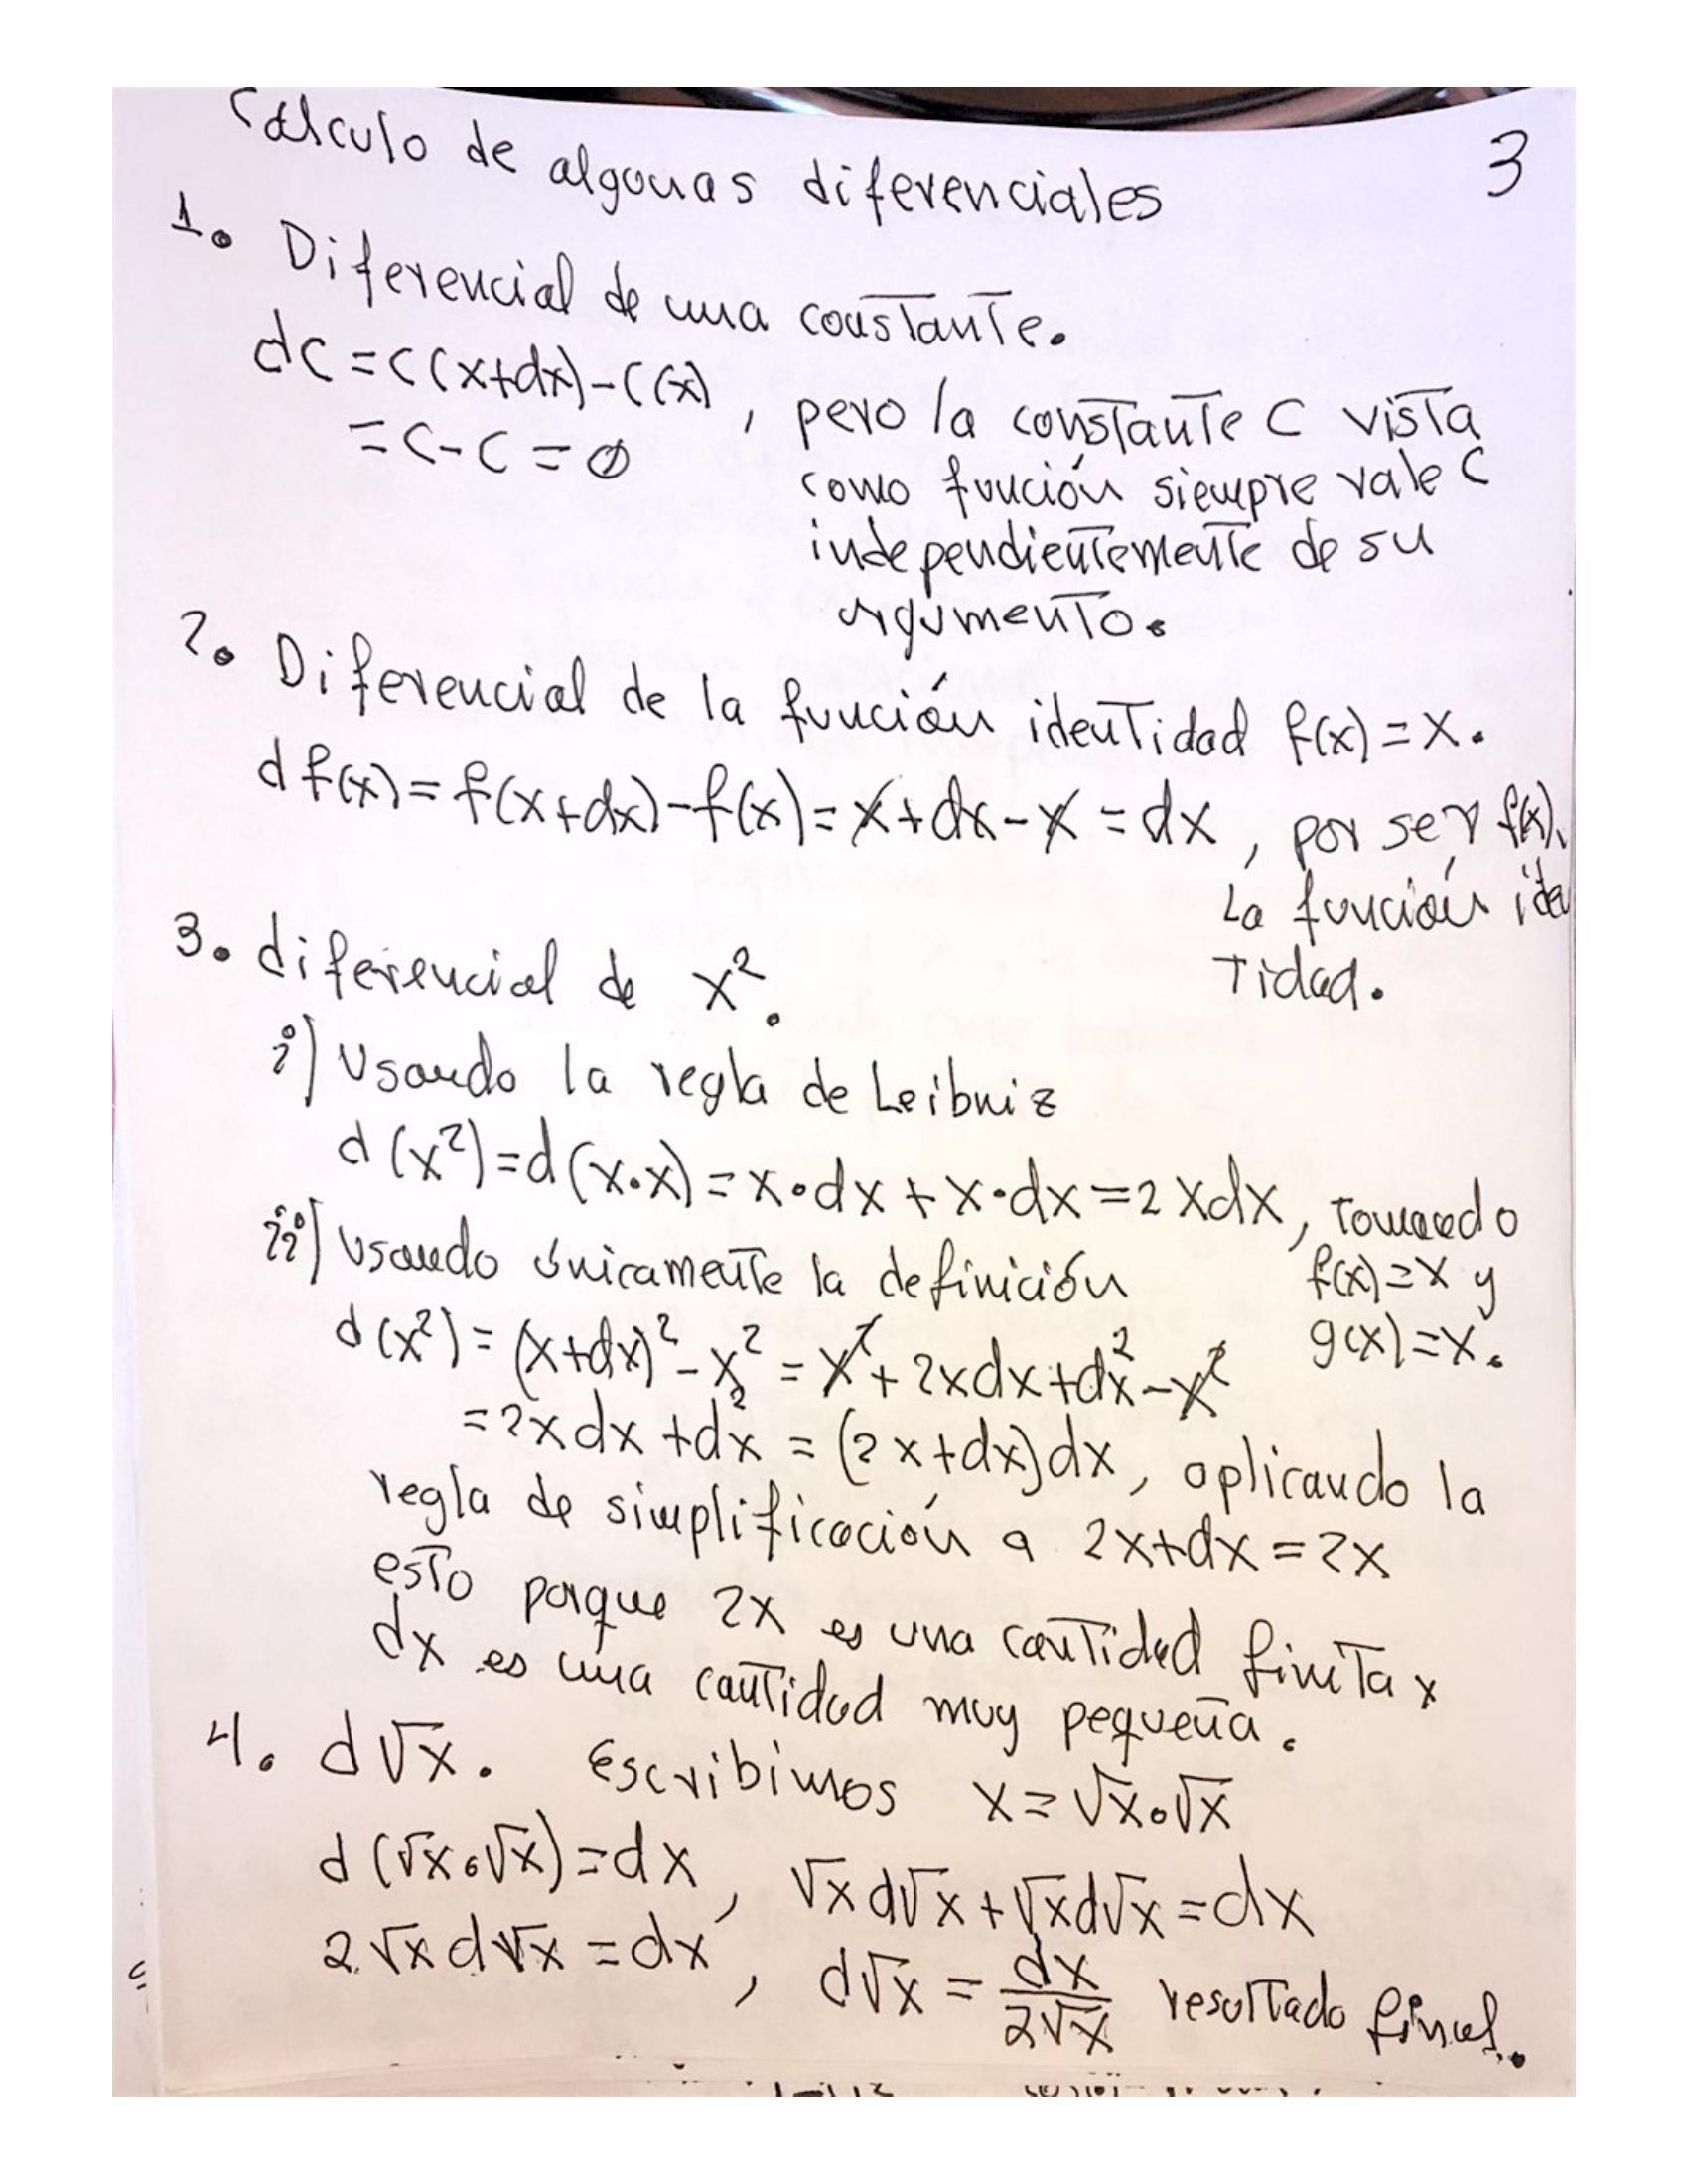 Cálculo de algunas diferenciales
3
1. Diferencial de una constante.
dC = C(x+dx)-C(x)
= C-C = 0
, pero la constante C vista
como función siempre vale C
independientemente de su
argumento.
2. Diferencial de la función identidad f(x) = x.
d f(x) = f(x+dx)-f(x) = x+dx-x = dx, por ser f(x).
La función iden
tidad.
3. diferencial de x².
i) Usando la regla de Leibniz
d(x²)=d(x·x) = x·dx + x·dx = 2xdx, tomando
f(x)=x y
g(x)=x.
ii) Usando únicamente la definición
d(x²) = (x+dx)² - x² = x² + 2xdx + dx² - x²
= 2xdx + dx² = (2x+dx)dx, aplicando la
regla de simplificación a 2x+dx = 2x
esto porque 2x es una cantidad finita y
dx es una cantidad muy pequeña.
4. d√x. Escribimos x = √x·√x
d(√x·√x) = dx, √x d√x + √x d√x = dx
2√x d√x = dx, d√x = dx/2√x resultado final.